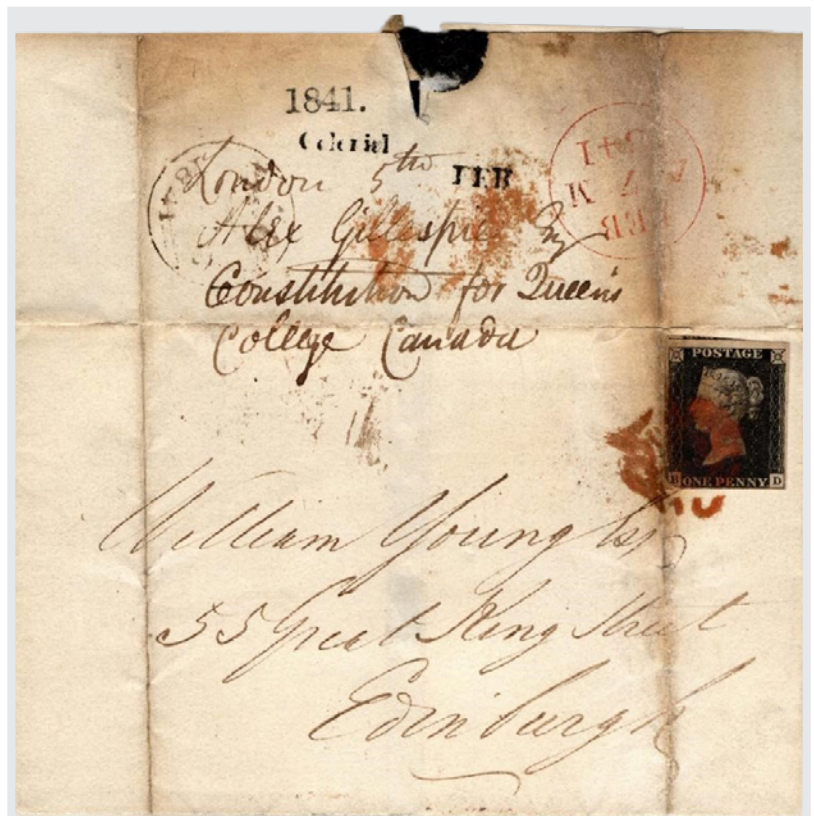 1841.
Colonial
FEB
London 5th
Alex Gillespie Esq
Constitution for Queen's
College Canada
1841
FEB
7
1841
POSTAGE
ONE PENNY D
William Young Esq
55 Great King Street
Edinburgh